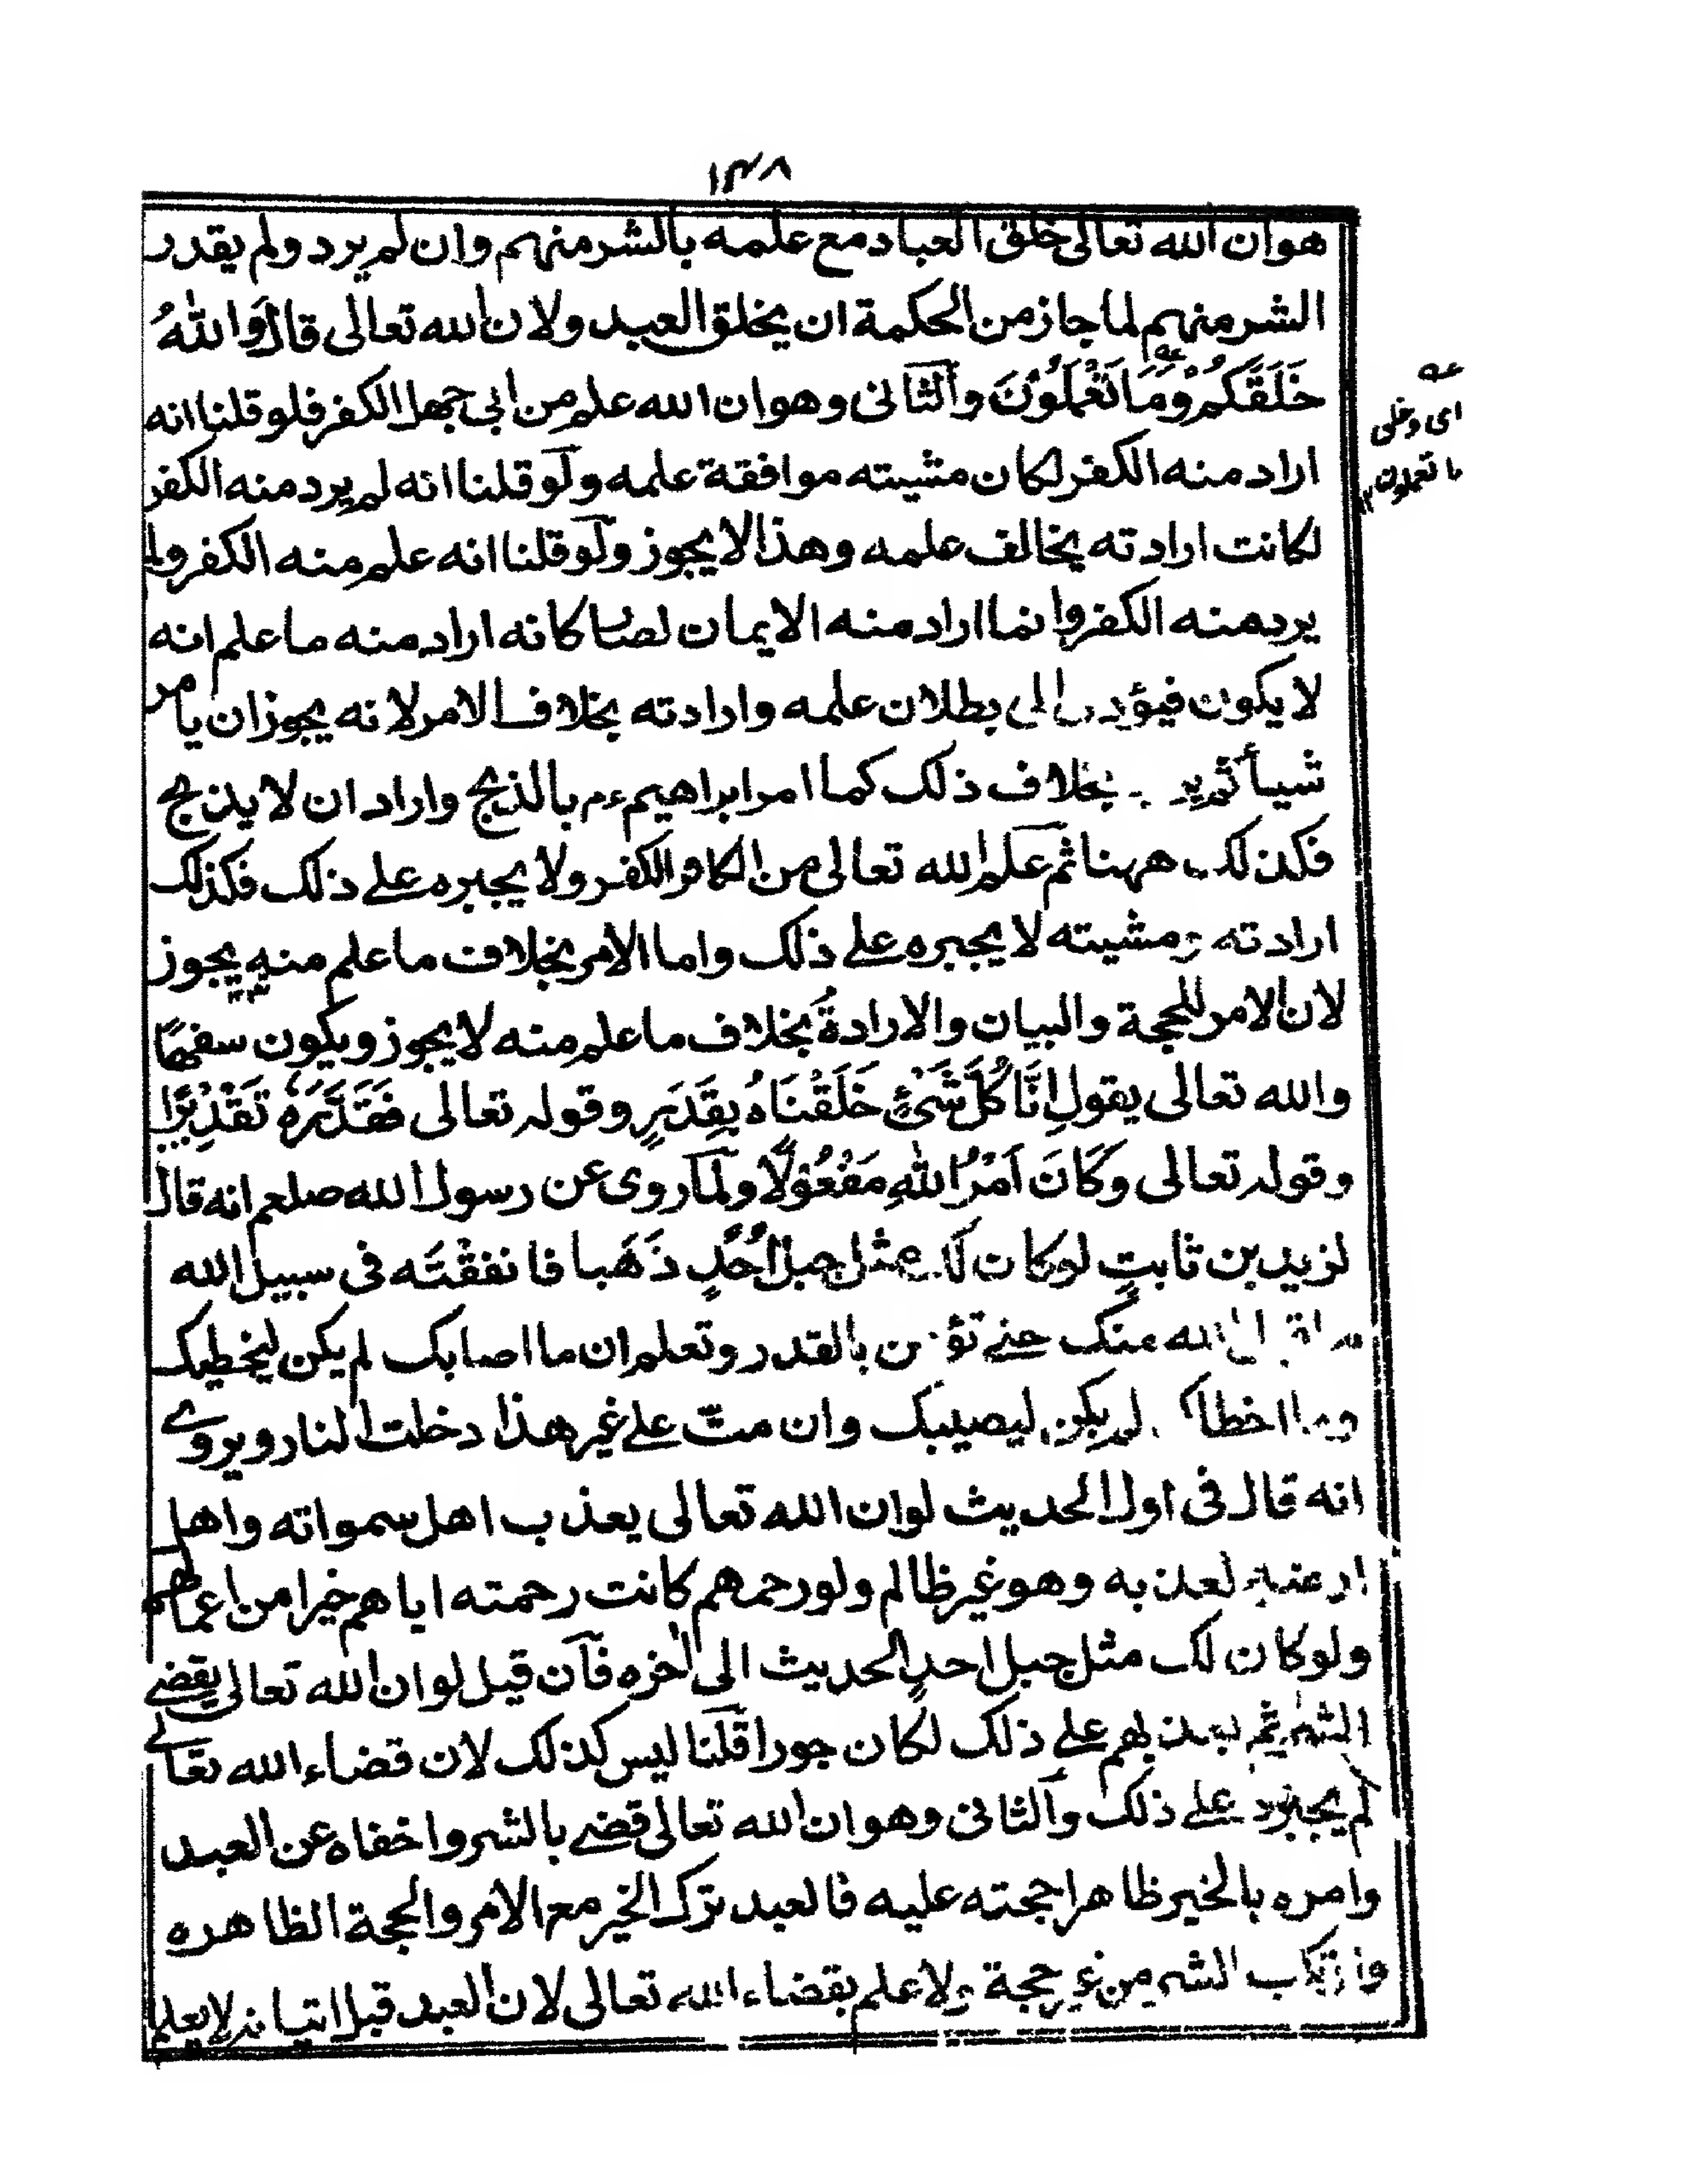 ١٣٨
هو ان الله تعالى خلق العباد مع علمه بالشر منهم وان لم يرد ولم يقدر
الشر منهم لما جاز من الحكمة ان يخلق العبد ولان الله تعالى قال وَاللهُ
خَلَقَكُمْ وَمَا تَعْمَلُوْنَ والثانى وهو ان الله علم من ابى جهل الكفر فلو قلنا انه
اراد منه الكفر لكان مشيته موافقة علمه ولو قلنا انه لم يرد منه الكفر
لكانت ارادته يخالف علمه وهذا لا يجوز ولو قلنا انه علم منه الكفر ولم
يرد منه الكفر وانما اراد منه الايمان لصار كانه اراد منه ما علم انه
لا يكون فيؤدى الى بطلان علمه وارادته بخلاف الامر لانه يجوز ان يامر
شيأ ثم يريد بخلاف ذلك كما امر ابراهيم ءم بالذبح واراد ان لا يذبح
فكذلك ههنا ثم علم الله تعالى من الكافر الكفر ولا يجبره على ذلك فكذلك
ارادته ومشيته لا يجبره على ذلك واما الامر بخلاف ما علم منه يجوز
لان الامر للحجة والبيان والارادةُ بخلاف ما علم منه لا يجوز ويكون سفهًا
والله تعالى يقول اِنَّا كُلَّ شَىْءٍ خَلَقْنَاهُ بِقَدَرٍ وقوله تعالى فَقَدَّرَهٗ تَقْدِيْرًا
وقوله تعالى وَكَانَ اَمْرُ اللهِ مَفْعُوْلًا ولما روى عن رسول الله صلعم انه قال
لزيد بن ثابتٍ لو كان لك مثل جبل اُحُدٍ ذَهَبا فانفقْتَه فى سبيل الله
ما قبل الله منك حتى تؤمن بالقدر وتعلم ان ما اصابك لم يكن ليخطيك
وما اخطاك لم يكن ليصيبك وان متّ على غير هذا دخلت النار ويروى
انه قال فى اول الحديث لو ان الله تعالى يعذب اهل سمواته واهل
ارضه لعذبه وهو غير ظالم ولو رحمهم كانت رحمته اياهم خيرا من اعمالهم
ولو كان لك مثل جبل احدٍ الحديث الى اخره فان قيل لو ان الله تعالى يقضى
الشر ثم يعذبهم على ذلك لكان جورا قلنا ليس كذلك لان قضاء الله تعالى
لم يجبره على ذلك والثانى وهو ان الله تعالى قضى بالشر واخفاه عن العبد
وامره بالخير ظاهرا حجته عليه فالعبد ترك الخير مع الامر والحجة الظاهره
وارتكاب الشر من غير حجة ولا علم بقضاء الله تعالى لان العبد قبل اتيانه لا يعلم
عه
اى وخلق
ما تعملون ١٢